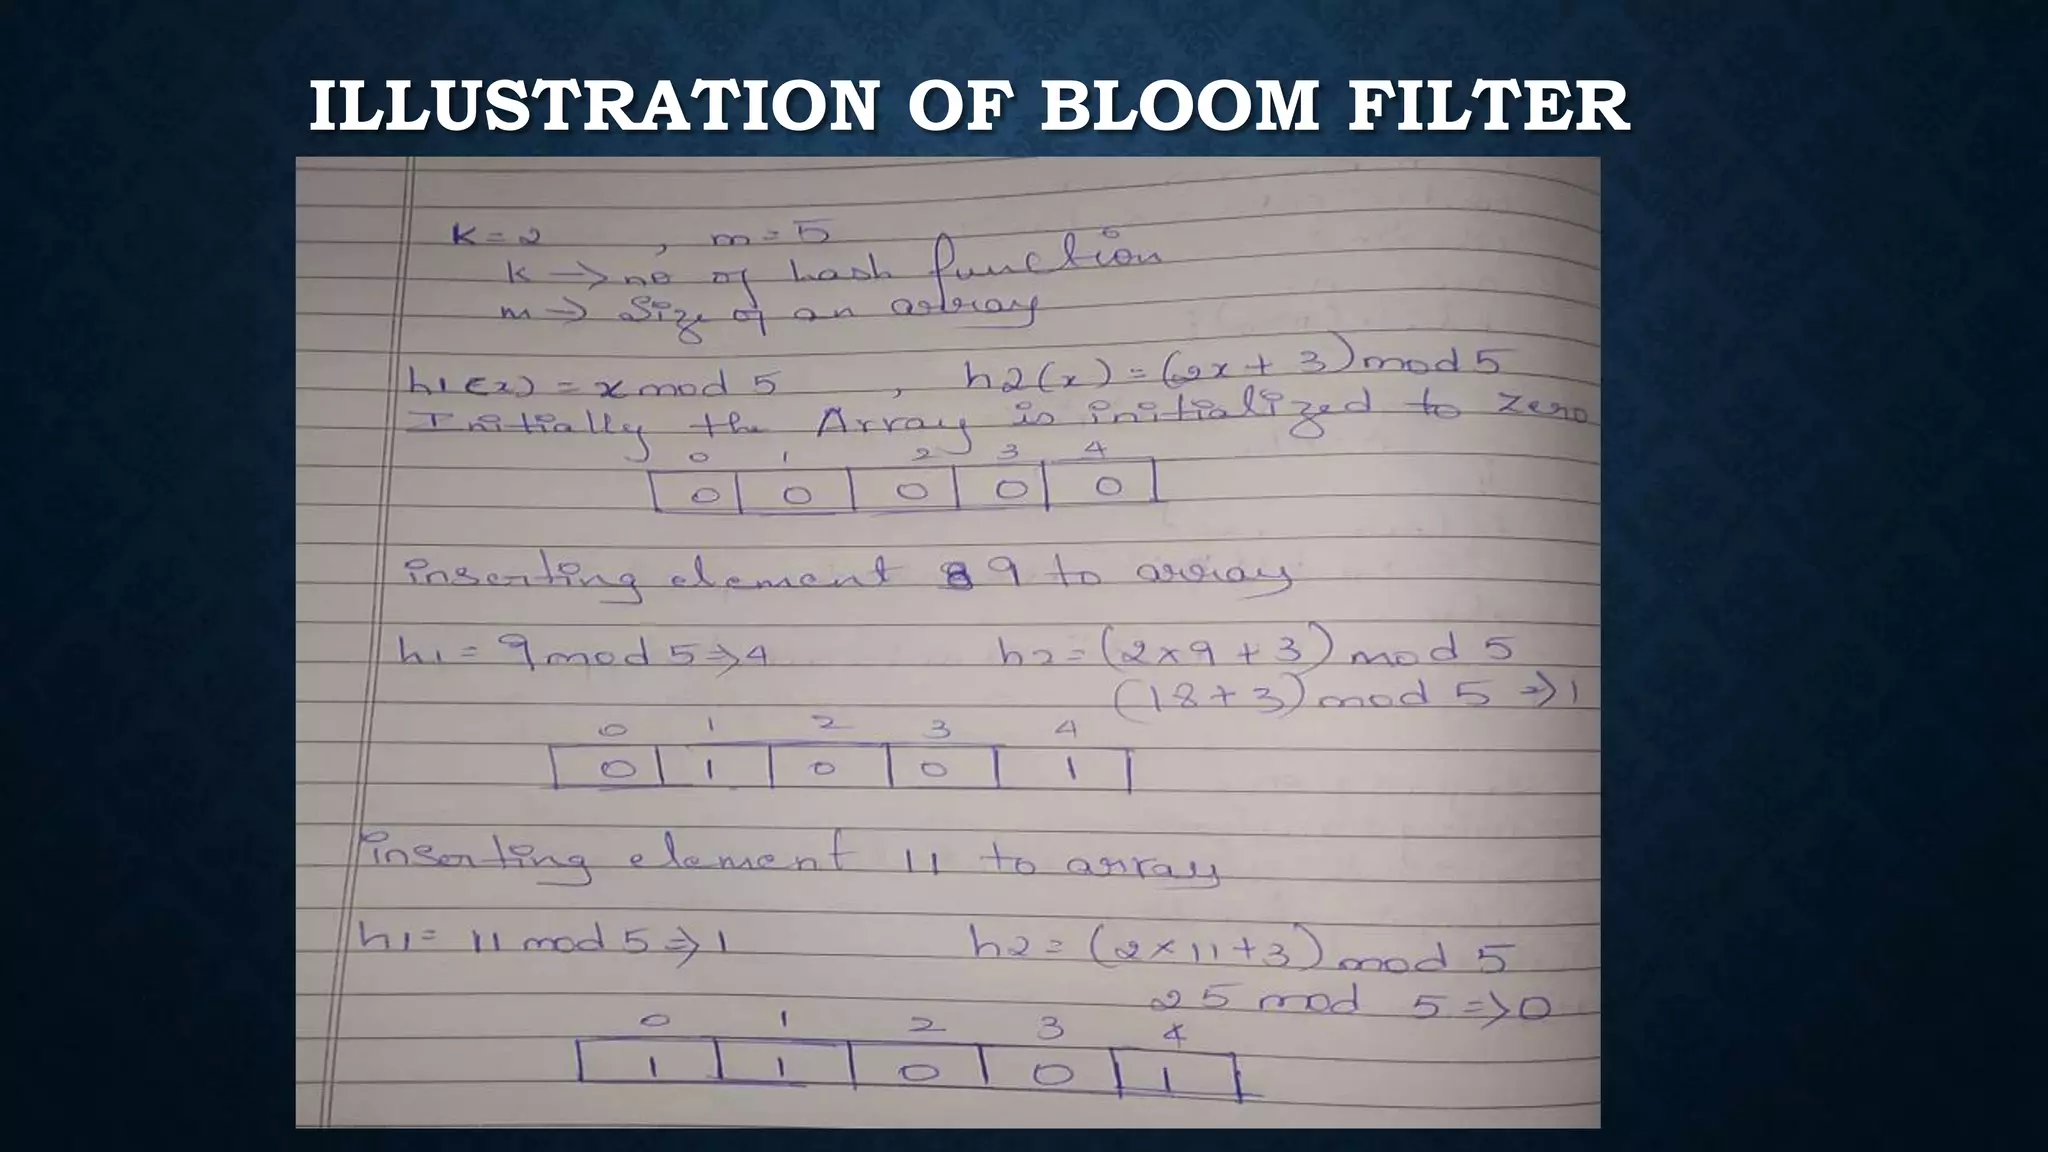 ILLUSTRATION OF BLOOM FILTER
K=2 , m=5
k → no of hash function
m → Size of an array
h1(x) = x mod 5 , h2(x) = (2x + 3) mod 5
Initially the Array is initialized to zero
0 1 2 3 4
0 0 0 0 0
inserting element 9 to array
h1 = 9 mod 5 ⇒ 4 h2 = (2×9 + 3) mod 5
(18 + 3) mod 5 ⇒ 1
0 1 2 3 4
0 1 0 0 1
inserting element 11 to array
h1 = 11 mod 5 ⇒ 1 h2 = (2×11+3) mod 5
25 mod 5 ⇒ 0
0 1 2 3 4
1 1 0 0 1